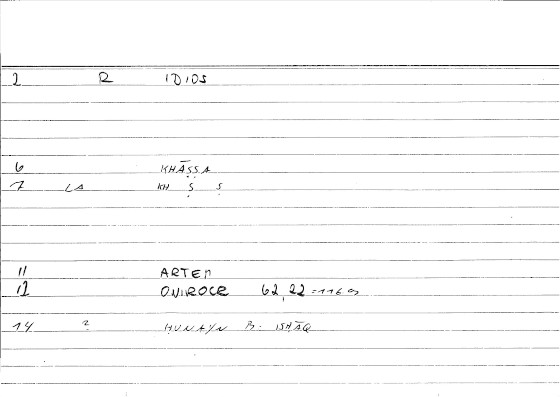 1 R IDIOS
6 KHĀṢṢA
7 LA KH Ṣ Ṣ
11 ARTEM
12 ONIROCR 62,22 = 116
14 ? ḤUNAYN B. ISḤĀQ